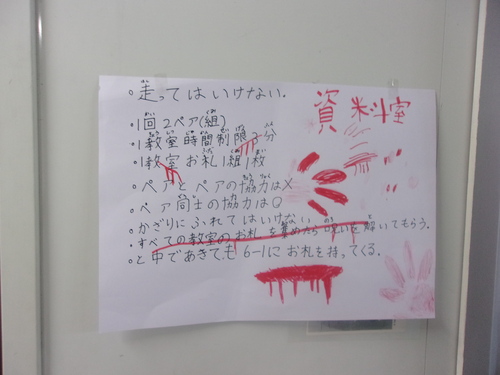 資料室
○走ってはいけない。
○1回2ペア(組)
○1教室時間制限2分
○1教室お札1組1枚
○ペアとペアの協力は×
○ペア同士の協力は○
○かざりにふれてはいけない
○すべての教室のお札を集めたら呪いを解いてもらう。
○と中であきても6-1にお札を持ってくる。